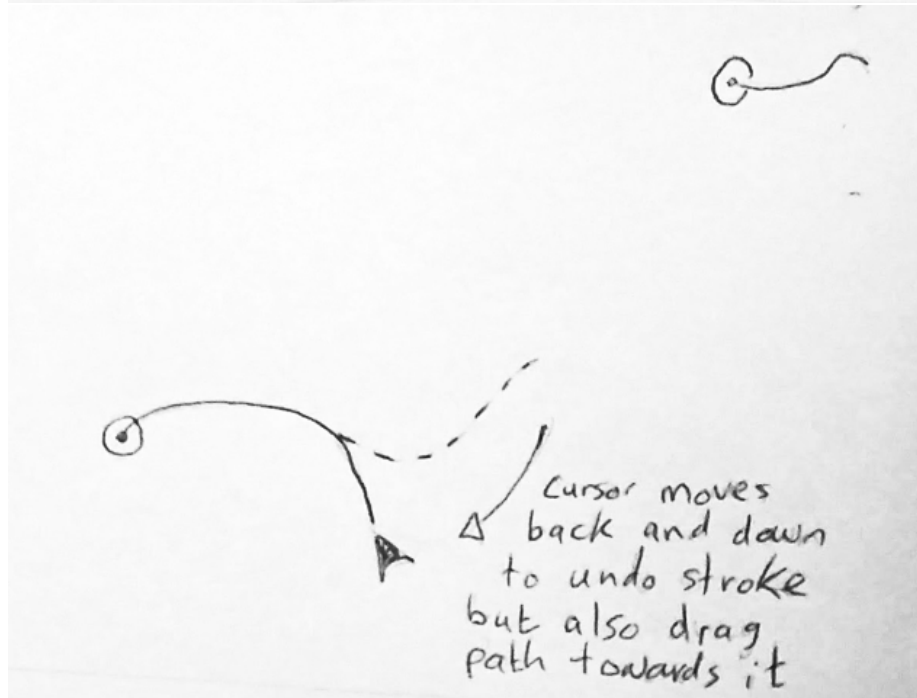 cursor moves
back and down
to undo stroke
but also drag
path towards it